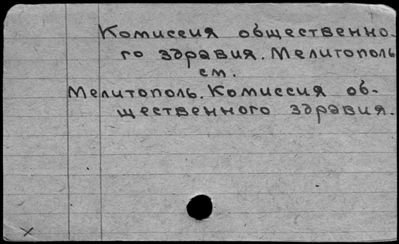 Комиссия общественно-
го здравия. Мелитополь
см.
Мелитополь. Комиссия об-
щественного здравия.